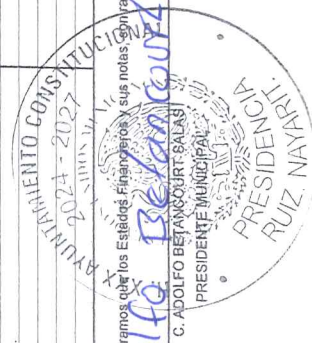 ramos que los Estados Financieros y sus notas, son ra
lfo Betancourt
C. ADOLFO BETANCOURT SALAS
PRESIDENTE MUNICIPAL
XIX AYUNTAMIENTO CONSTITUCIONAL
2024 - 2027
PRESIDENCIA
RUIZ, NAYARIT.